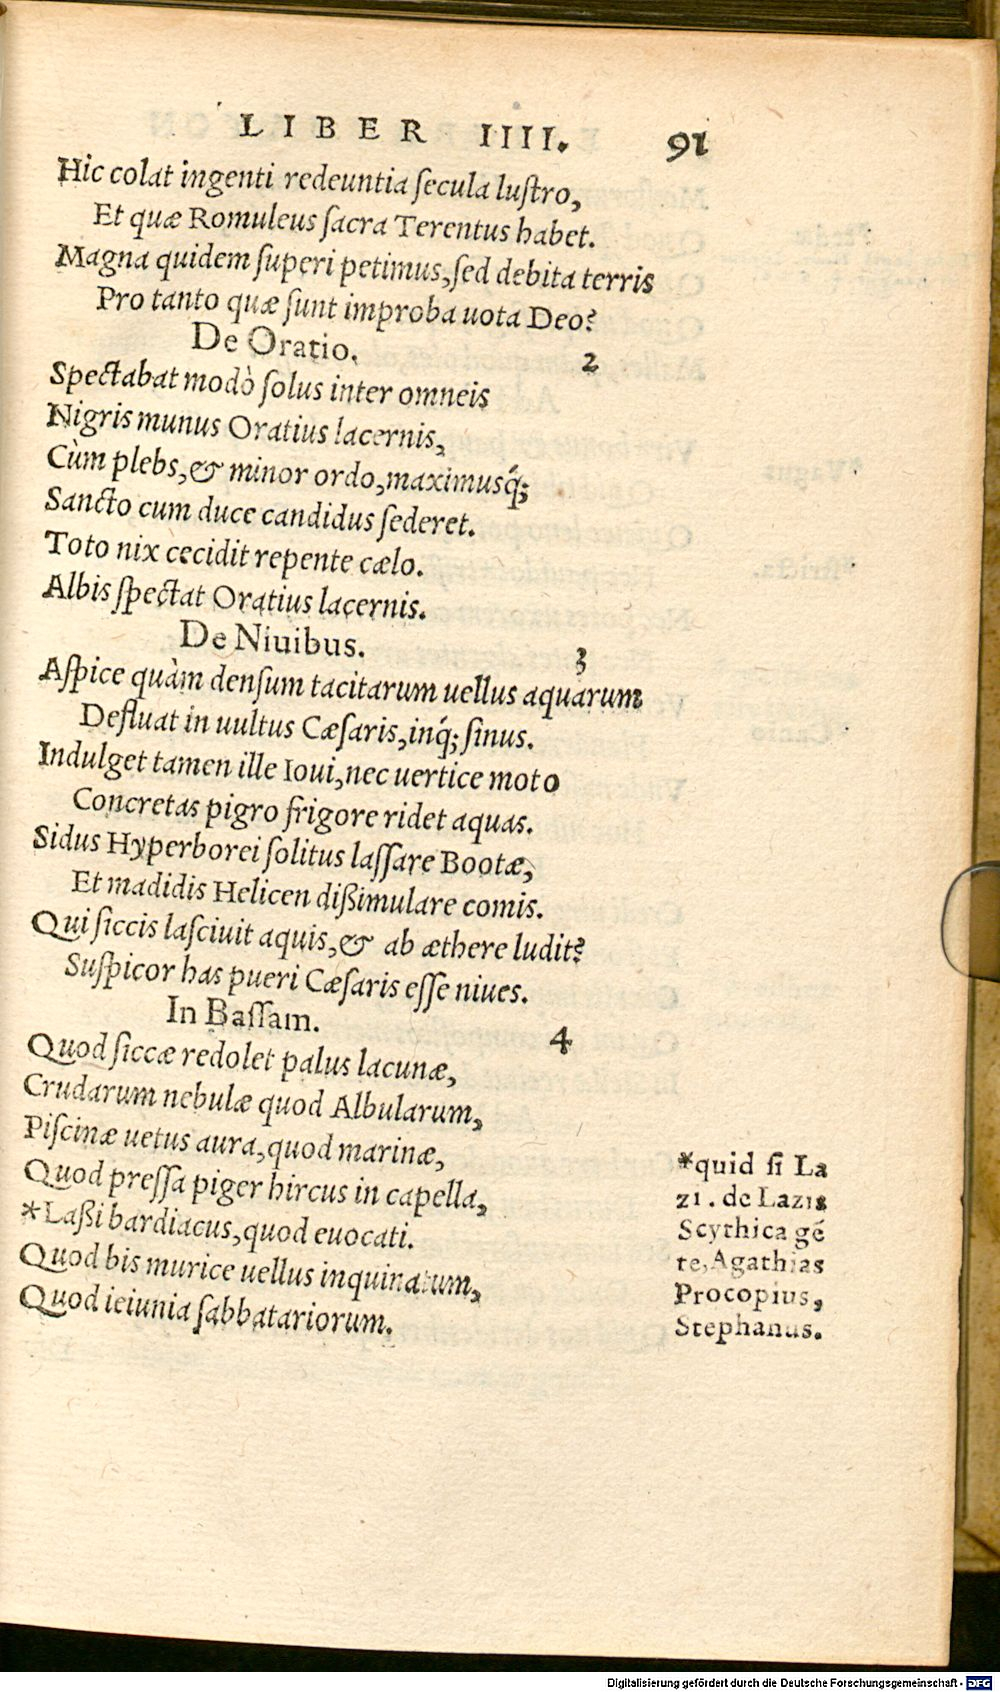 LIBER IIII. 91
Hic colat ingenti redeuntia ſecula luſtro,
Et quæ Romuleus ſacra Terentus habet.
Magna quidem ſuperi petimus, ſed debita terris
Pro tanto quæ ſunt improba uota Deo?
De Oratio. 2
Spectabat modò ſolus inter omneis
Nigris munus Oratius lacernis,
Cùm plebs, & minor ordo, maximusq́;
Sancto cum duce candidus ſederet.
Toto nix cecidit repente cælo.
Albis ſpectat Oratius lacernis.
De Niuibus. 3
Aſpice quàm denſum tacitarum uellus aquarum
Defluat in uultus Cæſaris, inq́; ſinus.
Indulget tamen ille Ioui, nec uertice moto
Concretas pigro frigore ridet aquas.
Sidus Hyperborei ſolitus laſſare Bootæ,
Et madidis Helicen dißimulare comis.
Qui ſiccis laſciuit aquis, & ab æthere ludit?
Suſpicor has pueri Cæſaris eſſe niues.
In Baſſam. 4
Quod ſiccæ redolet palus lacunæ,
Crudarum nebulæ quod Albularum,
Piſcinæ uetus aura, quod marinæ,
Quod preſſa piger hircus in capella,
*Laßi bardiacus, quod euocati.
Quod bis murice uellus inquinatum,
Quod ieiunia ſabbatariorum.
*quid ſi La
zi. de Lazis
Scythica gẽ
te, Agathias
Procopius,
Stephanus.
Digitalisierung gefördert durch die Deutsche Forschungsgemeinschaft - DFG